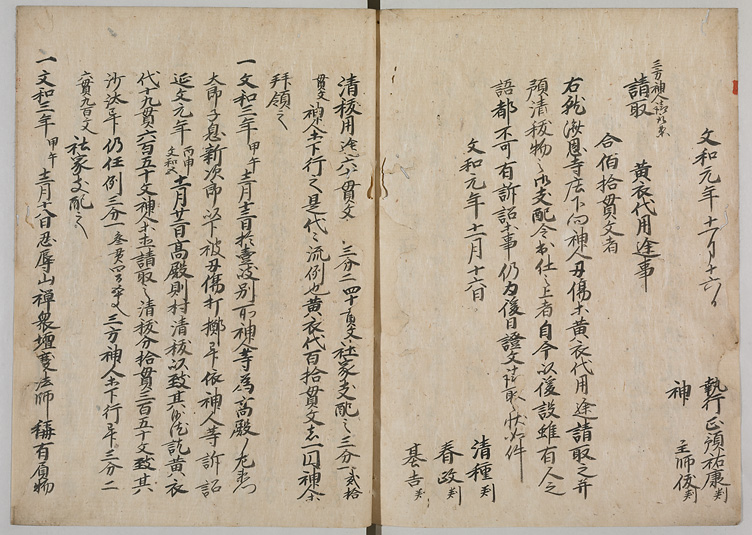 文和元年十一月十六日
執行正預祐康判
神主師俊判
三方神人請取案
請取　黄衣代用途事
合伯拾貫文者
右就海恩寺法下向神人刃傷黄衣代用途請取之并
預清祓物之沙支配令出仕之上者自今以後設雖有人之
語都不可有訴訟事仍為後日證文請取之状如件
文和元年十一月十六日
清種判
春政判
基吉判
清祓用途六十貫文　三分二四十貫文社家支配之三分一貳拾
貫文神人下行之是代之流例也黄衣代百拾貫文者一円神人
拝領之
一文和三年甲午十二月十三日於壹岐別所神人等為高殿
太郎子息新次郎以下被刃傷打擲畢依神人等訴訟
延文元年丙申十一月廿日高殿則村清祓以致其沙汰訖黄衣
代十九貫六百五十文神人請取之清祓分拾貫三百五十文致其
沙汰畢仍任例三分一三方神人下行畢三分二
六貫九百文社家支配之
一文和三年甲午十二月十八日忍辱山禅衆壇慶法師稱有負物